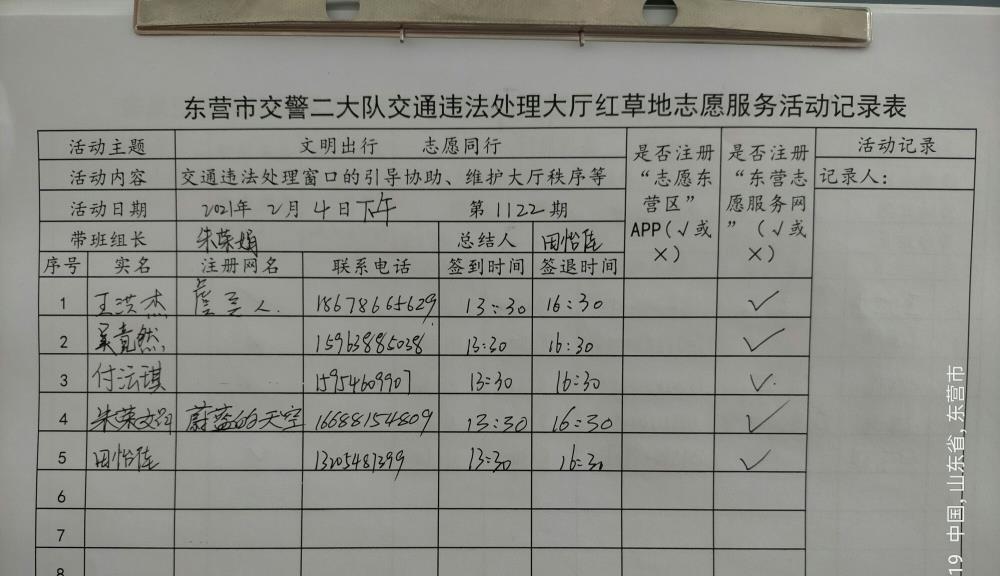 东营市交警二大队交通违法处理大厅红草地志愿服务活动记录表
活动主题 文明出行 志愿同行 是否注册“志愿东营区”APP(√或×) 是否注册“东营志愿服务网”(√或×) 活动记录
活动内容 交通违法处理窗口的引导协助、维护大厅秩序等 记录人:
活动日期 2021年2月4日下午 第1122期
带班组长 朱荣娟 总结人 田怡佳
序号 实名 注册网名 联系电话 签到时间 签退时间
1 王洪杰 人. 18678665629 13:30 16:30 √
2 吴竟然 15963885038 13:30 16:30 √
3 付沄琪 15954609907 13:30 16:30 √
4 朱荣娟 蔚蓝的天空 16688154809 13:30 16:30 √
5 田怡佳 13205481399 13:30 16:30 √
6
7
8
19 中国,山东省,东营市